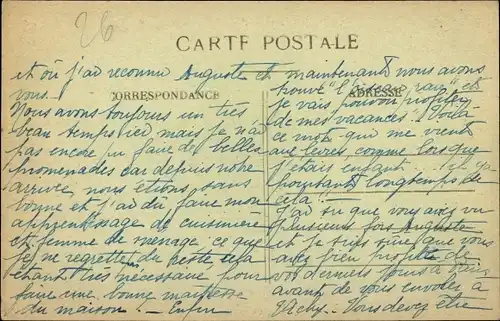 26
CARTE POSTALE
CORRESPONDANCE
ADRESSE
et où j'ai reconnu Auguste et
vous.
Nous avons toujours un très
beau temps ici, mais je n'ai
pas encore pu faire de belles
promenades car depuis notre
arrivée nous étions sans
bonne et j'ai dû faire mon
apprentissage de cuisinière
et femme de ménage, ce que
je ne regrette du reste
chant très nécessaire pour
faire une bonne maîtresse
du maison. Enfin
maintenant nous avons
trouvé "l'oiseau rare" et
je vais pouvoir profiter
de mes vacances! Voilà
ce mot qui me vient
aux lèvres, comme lorsque
j'étais enfant, il y a
pourtant longtemps de
cela!
J'ai su que vous avez vu
plusieurs fois Auguste
et je suis sûre que vous
avez bien profité de
vos derniers jours à
avant de vous envoler à
Vichy. Vous devez être